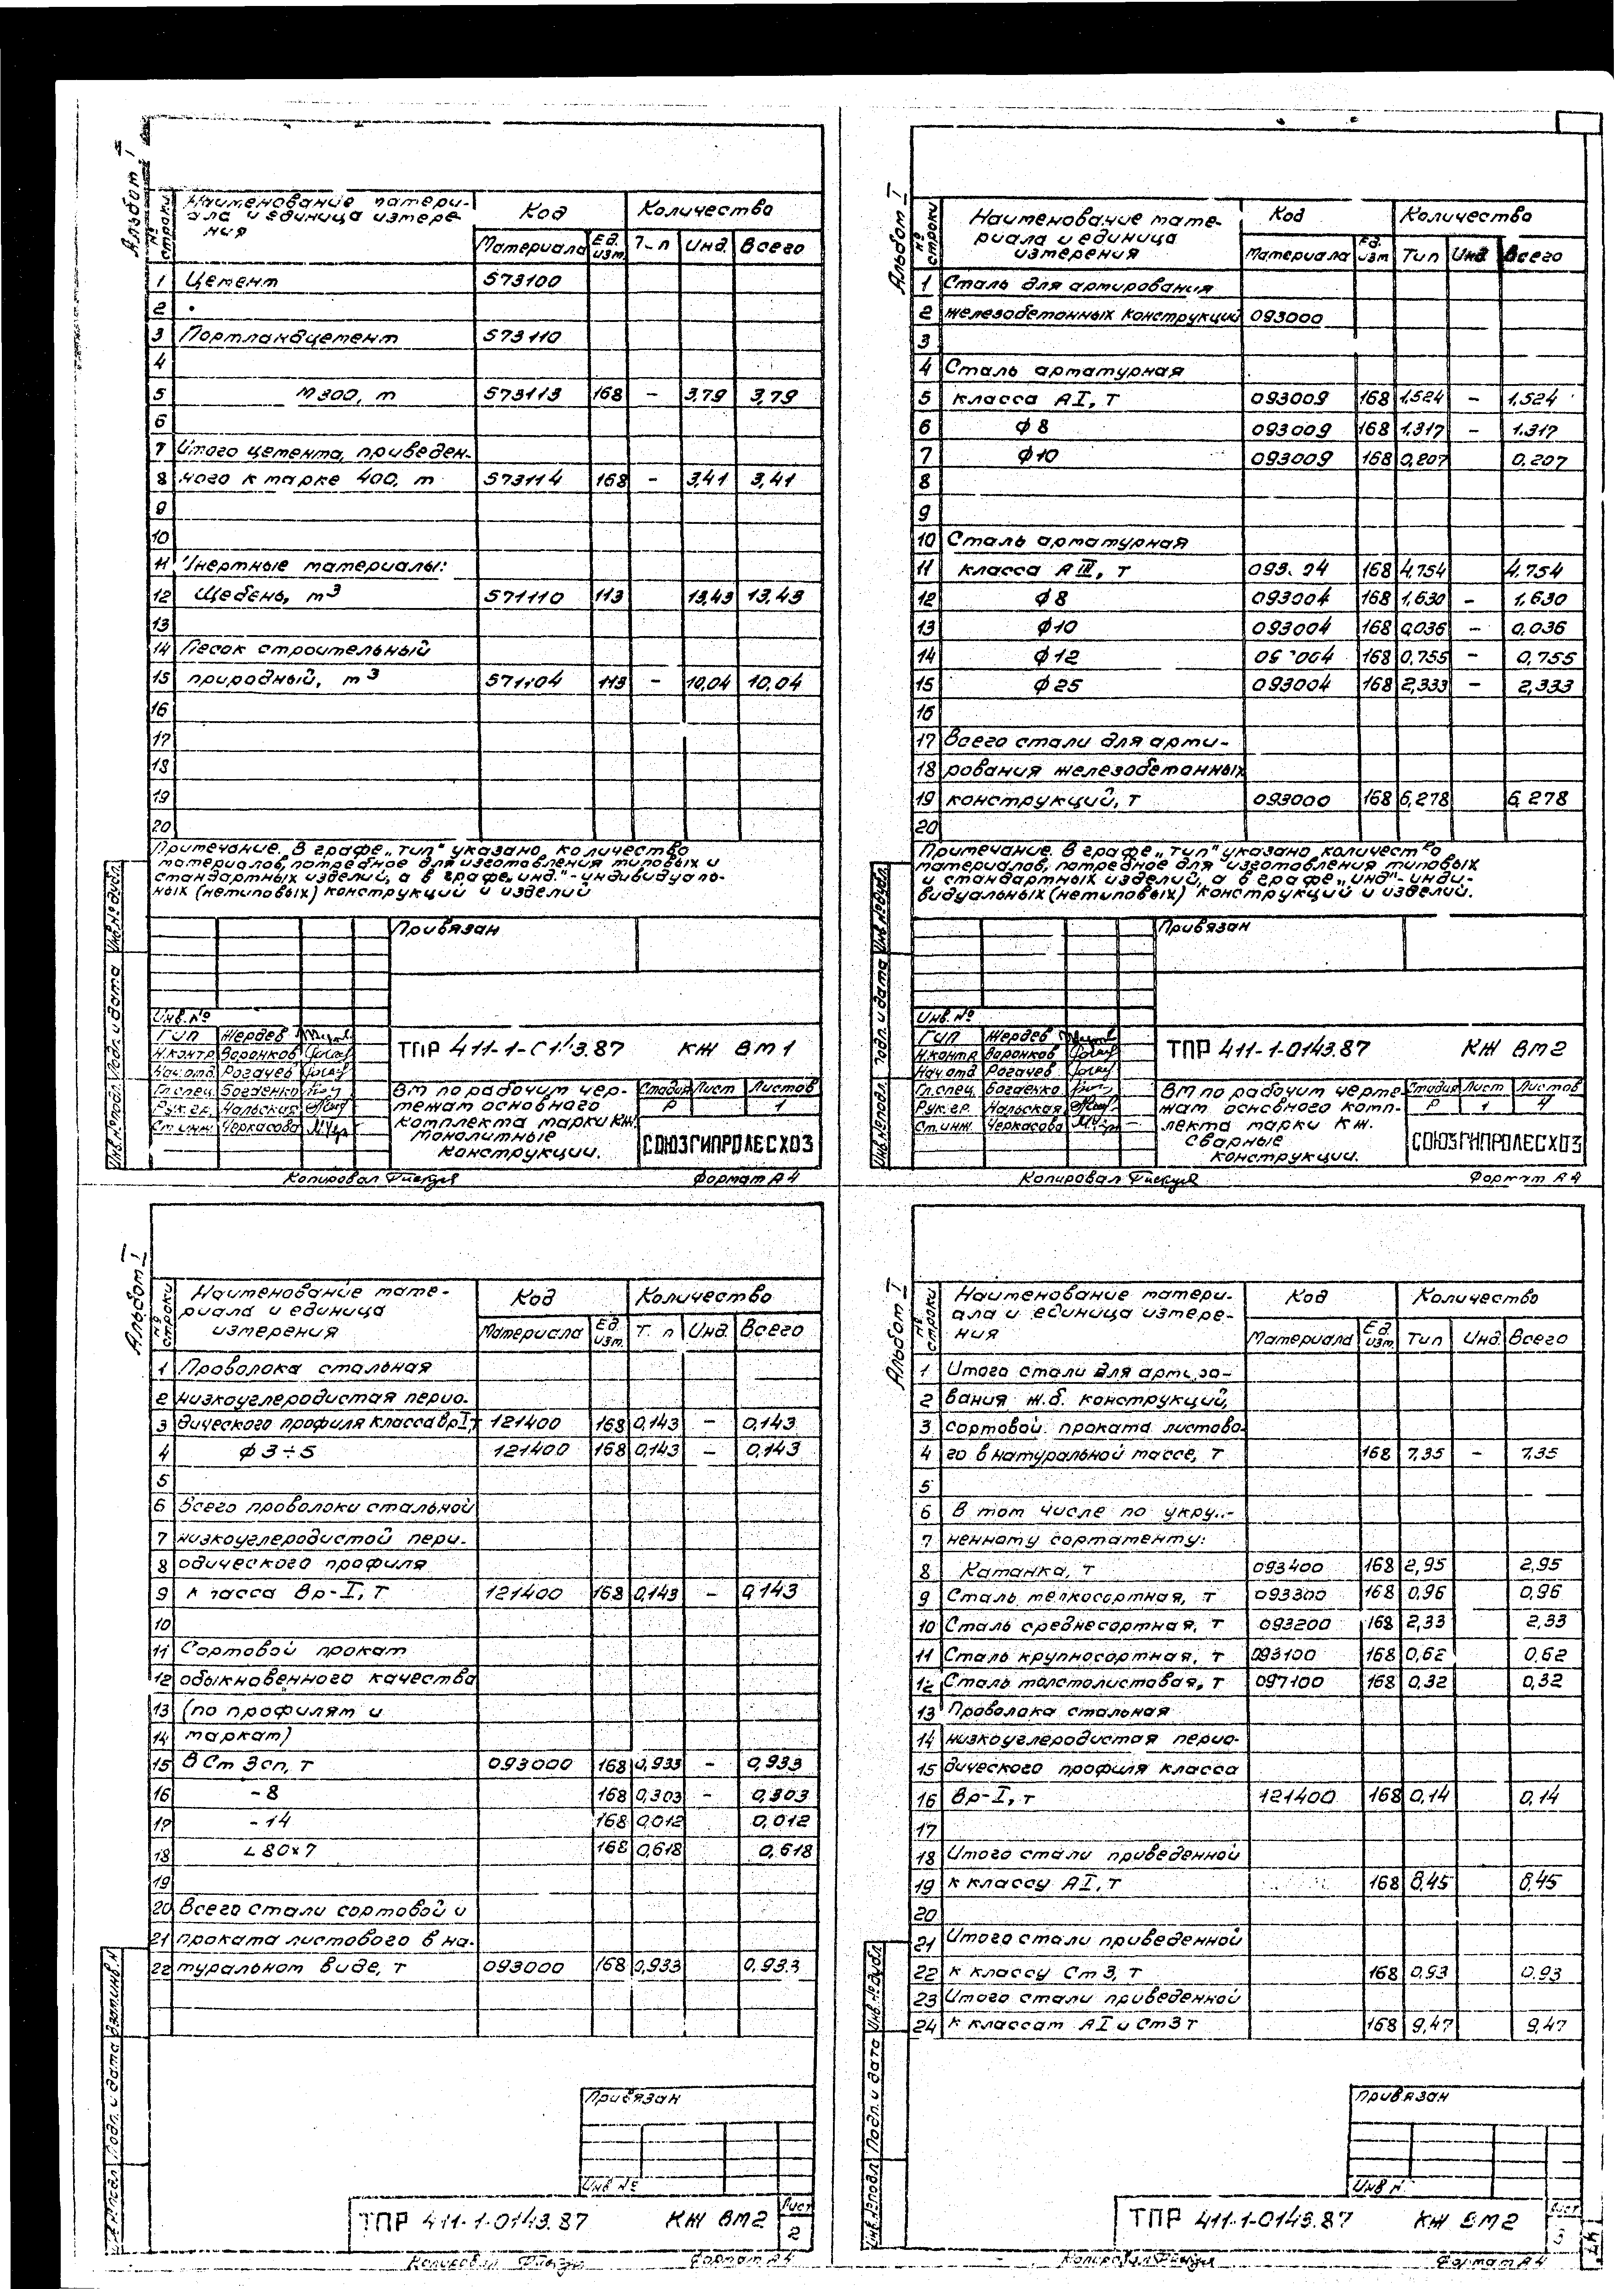 Альбом I
№ строки
Наименование матери-
ала и единица измере-
ния
Код
Количество
Материала Ед. изм. Т-п Инд. Всего
1 Цемент 573100
2
3 Портландцемент 573110
4
5 М300, т 573113 168 - 3,79 3,79
6
7 Итого цемента, приведен-
8 ного к марке 400, т 573114 168 - 3,41 3,41
9
10
11 Инертные материалы:
12 Щебень, м³ 571110 113 13,43 13,43
13
14 Песок строительный
15 природный, м³ 571104 113 - 10,04 10,04
16
17
18
19
20
Примечание. В графе „тип" указано количество
материалов, потребное для изготовления типовых и
стандартных изделий, а в графе „инд."-индивидуаль-
ных (нетиповых) конструкций и изделий
Привязан
Инв. №
ГИП Жердев
Н.контр Воронков
Нач.отд Рогачев
Гл.спец. Богаенко
Рук.гр. Нальская
Ст.инж. Черкасова
ТПР 411-1-01 3.87 КЖ ВМ1
ВМ по рабочим чер-
тежам основного
комплекта марки КЖ.
Монолитные
конструкции.
Стадия Лист Листов
Р 1
СОЮЗГИПРОЛЕСХОЗ
Инв.№подл. Подп. и дата Инв.№дубл.
Копировал Формат А4
Альбом I
№ строки
Наименование мате-
риала и единица
измерения
Код
Количество
Материала Ед. изм Тип Инд. Всего
1 Сталь для армирования
2 железобетонных конструкций 093000
3
4 Сталь арматурная
5 класса АI, т 093009 168 1,524 - 1,524
6 ф8 093009 168 1.317 - 1.317
7 ф10 093009 168 0,207 0,207
8
9
10 Сталь арматурная
11 класса АIII, т 093. 04 168 4,754 4,754
12 ф8 093004 168 1,630 - 1,630
13 ф10 093004 168 0,036 - 0,036
14 ф12 09 004 168 0,755 - 0,755
15 ф25 093004 168 2,333 - 2,333
16
17 Всего стали для арми-
18 рования железобетонных
19 конструкций, т 093000 168 6,278 6,278
20
Примечание. В графе „тип" указано количество
материалов, потребное для изготовления типовых
и стандартных изделий, а в графе „инд"-инди-
видуальных (нетиповых) конструкций и изделий.
Привязан
Инв. №
ГИП Жердев
Н.контр Воронков
Нач.отд Рогачев
Гл.спец. Богаенко
Рук.гр. Нальская
Ст.инж. Черкасова
ТПР 411-1-0143.87 КЖ ВМ2
ВМ по рабочим черте-
жам основного комп-
лекта марки КЖ.
Сварные
конструкции.
Стадия Лист Листов
Р 1 4
СОЮЗГИПРОЛЕСХОЗ
Инв.№подл. Подп. и дата Инв.№дубл.
Копировал Формат А4
Альбом I
№ строки
Наименование мате-
риала и единица
измерения
Код
Количество
Материала Ед. изм. Т. п Инд. Всего
1 Проволока стальная
2 низкоуглеродистая перио-
3 дического профиля класса Вр I, т 121400 168 0,143 - 0,143
4 ф 3÷5 121400 168 0,143 - 0,143
5
6 Всего проволоки стальной
7 низкоуглеродистой пери-
8 одического профиля
9 класса Вр-I, т 121400 168 0,143 - 0,143
10
11 Сортовой прокат
12 обыкновенного качества
13 (по профилям и
14 маркам)
15 ВСт 3сп, т 093000 168 0,933 - 0,933
16 -8 168 0,303 - 0,303
17 -14 168 0,012 0,012
18 ∟80×7 168 0,618 0,618
19
20 Всего стали сортовой и
21 проката листового в на-
22 туральном виде, т 093000 168 0,933 0,933
Привязан
Инв №
ТПР 411-1-0143.87 КЖ ВМ2
Лист
2
Подп. и дата Взам.инв.N
Копировал Формат А4
Альбом I
№ строки
Наименование матери-
ала и единица измере-
ния
Код
Количество
Материала Ед. изм. Тип Инд Всего
1 Итого стали для армиро-
2 вания ж.б. конструкций,
3 сортовой проката листово-
4 го в натуральной массе, т 168 7,35 - 7,35
5
6 В том числе по укруп-
7 ненному сортаменту:
8 Катанка, т 093400 168 2,95 2,95
9 Сталь мелкосортная, т 093300 168 0,96 0,96
10 Сталь среднесортная, т 093200 168 2,33 2,33
11 Сталь крупносортная, т 093100 168 0,62 0,62
12 Сталь толстолистовая, т 097100 168 0,32 0,32
13 Проволока стальная
14 низкоуглеродистая перио-
15 дического профиля класса
16 Вр-I, т 121400 168 0,14 0,14
17
18 Итого стали приведенной
19 к классу АI, т 168 8,45 8,45
20
21 Итого стали приведенной
22 к классу Ст 3, т 168 0,93 0,93
23 Итого стали приведенной
24 к классам АI и Ст3 т 168 9,47 9,47
Привязан
Инв N
ТПР 411-1-0143.87 КЖ ВМ2
Лист
3
Инв.№подл. Подп. и дата Инв.№дубл
Копировал Формат А4